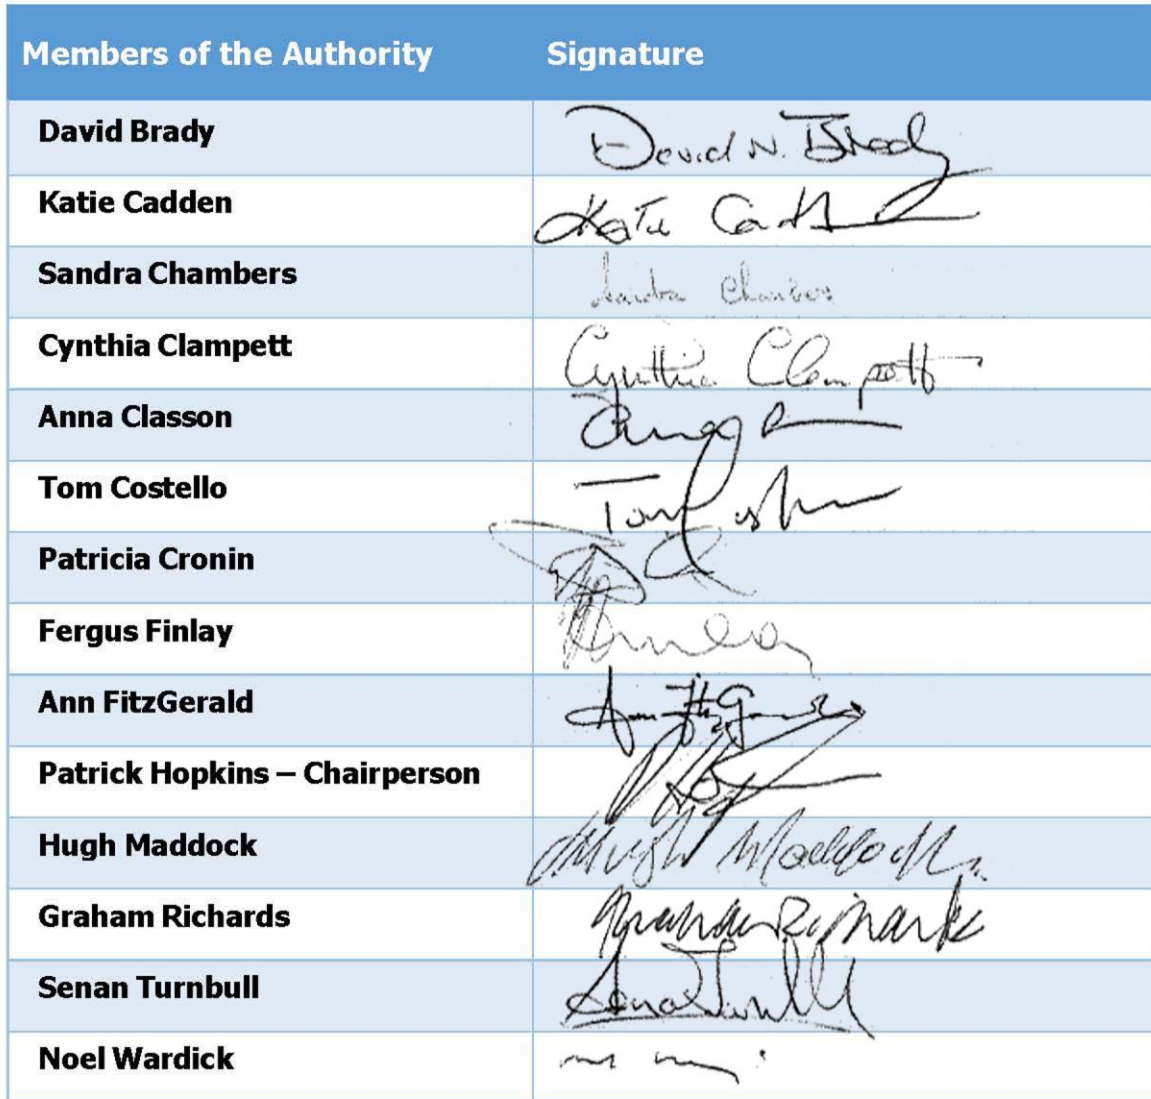 Members of the Authority Signature
David Brady David N. Brady
Katie Cadden Katie
Sandra Chambers Sandra Chambers
Cynthia Clampett Cynthia Clampett
Anna Classon
Tom Costello Tom
Patricia Cronin
Fergus Finlay
Ann FitzGerald
Patrick Hopkins – Chairperson
Hugh Maddock Hugh Maddock
Graham Richards Graham Richards
Senan Turnbull Senan Turnbull
Noel Wardick